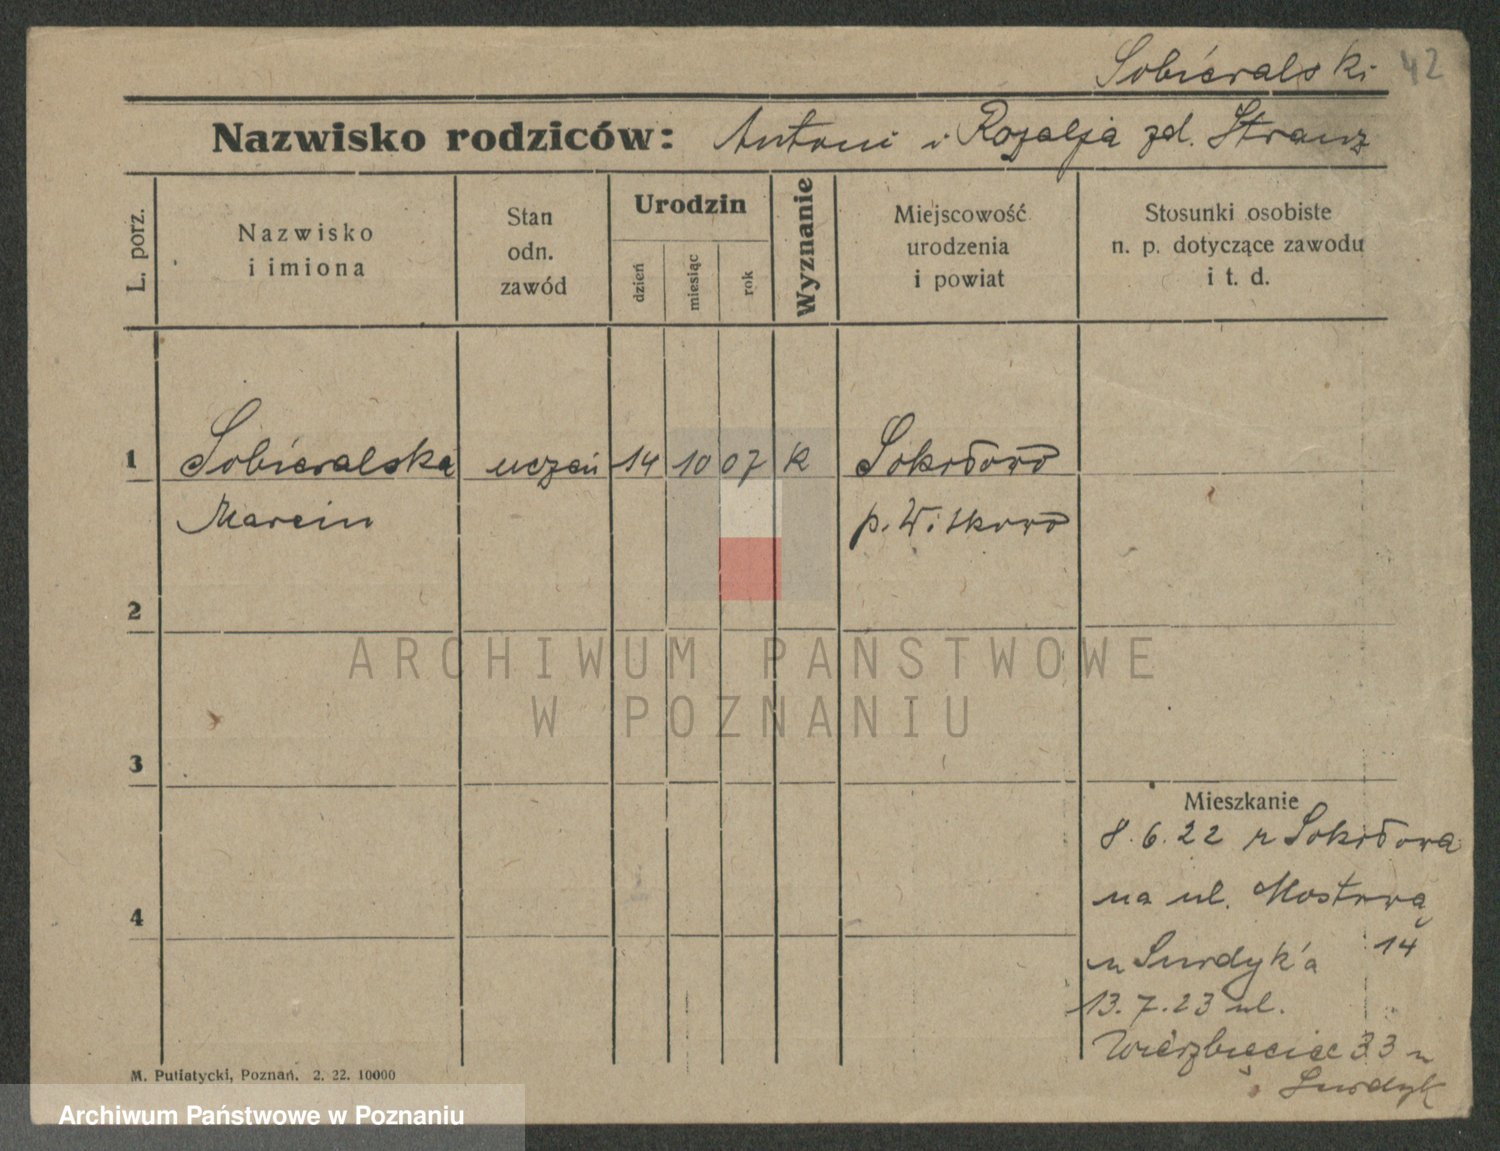 Sobieralski 42
Nazwisko rodziców: Antoni i Rozalja zd. Stranz
L. porz.
Nazwisko
i imiona
Stan
odn.
zawód
Urodzin
dzień
miesiąc
rok
Wyznanie
Miejscowość
urodzenia
i powiat
Stosunki osobiste
n. p. dotyczące zawodu
i t. d.
1 Sobieralska uczeń 14 10 07 K Sokołowo
Marcin p. Witkowo
2
ARCHIWUM PAŃSTWOWE
W POZNANIU
3
Mieszkanie
8.6.22 z Sokołowa
na ul. Mostową
4
14
u Surdyk'a
13.7.23 ul.
Wierzbięcice 33 u
Surdyk
M. Putiatycki, Poznań. 2. 22. 10000
Archiwum Państwowe w Poznaniu